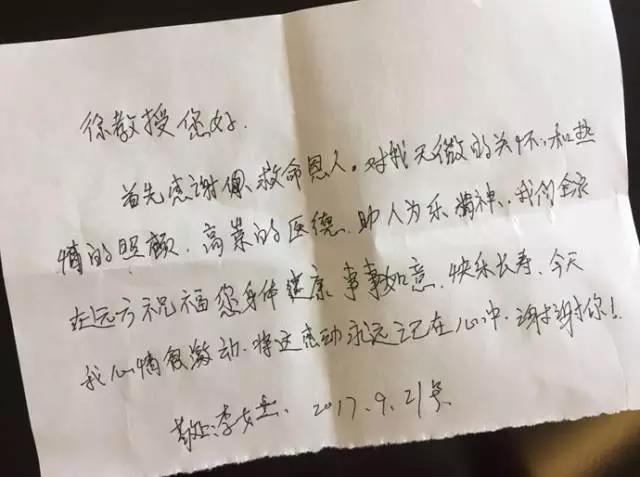 徐教授您好.
首先感谢您救命恩人。对我无微的关怀.和热
情的照顾.高崇的医德.助人为乐精神.我们全家
在远方祝福您身体健康 事事如意.快乐长寿.今天
我心情很激动.将这感动永远记在心中.谢谢你!
敬上:李女士. 2017.9.21